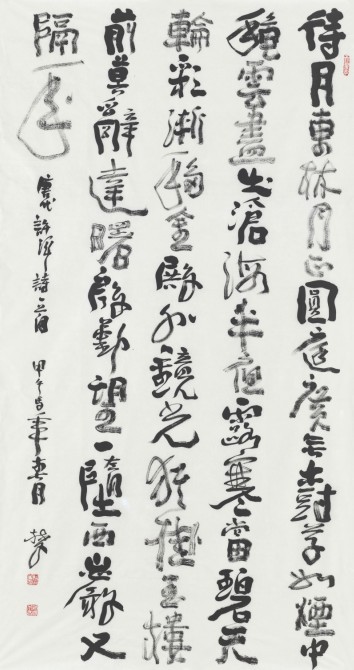 待月東林月正圓庭廣无樹草如煙中
龝雲盡出滄海半夜露寒當碧天
輪彩漸移金殿外鏡光猶挂玉樓
前莫辭達曙殷勤望一墮西巖又
隔年
唐代許渾詩一首 甲午